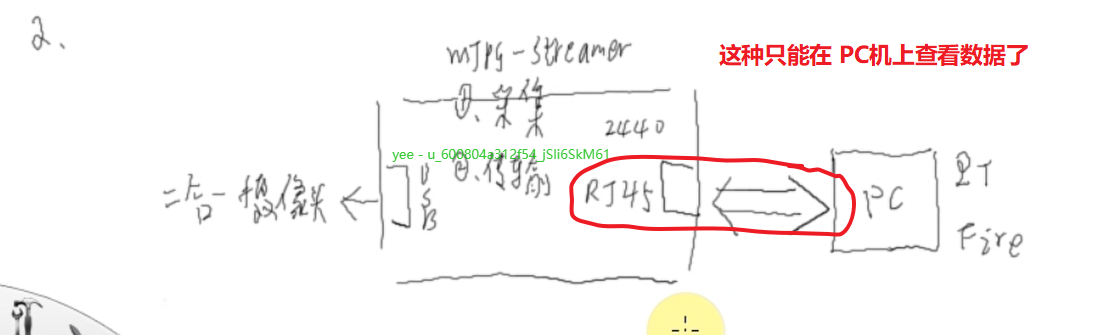 2、
mJPG-Streamer
这种只能在 PC机上查看数据了
①、采集
2440
yee - u_600804a312f54_jSIi6SkM61
②、传输
二合一摄像头
USB
RJ45
PC
QT
Fire